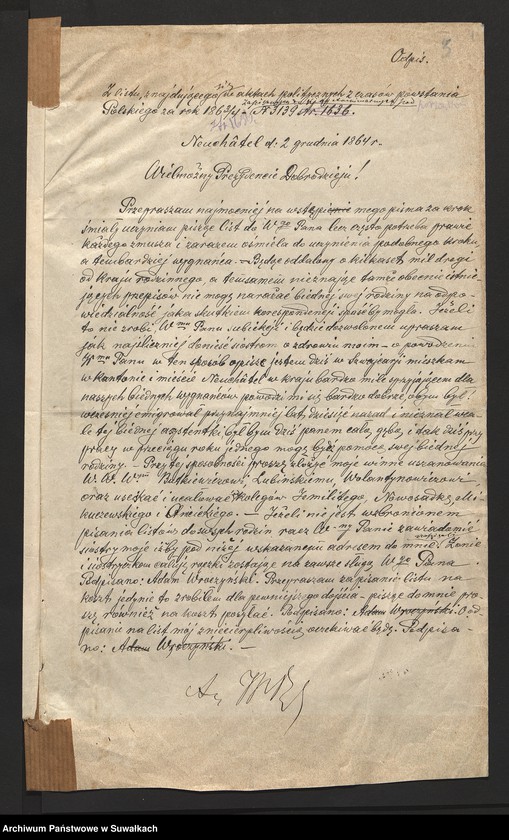 Odpis.
Z listu, znajdującego się w aktach politycznych z czasów powstania
zapisanych
Polskiego za rok 1863/4 N 3139 1636.
Neuchâtel d: 2 grudnia 1864 r.
Wielmożny Prezydencie Dobrodzieju!
Przepraszam najmocniej na wstępie mego pisma za krok
śmiały uczyniłem piszę list do Wgo Pana lecz często potrzeba prawie
każdego zmusza i zarazem ośmiela do uczynienia podobnego kroku,
a tembardziej wygnańca. – Będąc oddalony o kilkaset mil drogi
od kraju rodzinnego, a temsamem nieznając tamże obecnie istnie-
jących przepisów nie mogę narażać biednej swej rodziny na odpo-
wiedzialność jaka skutkiem korespondencji sposobę mogła. Jeżeli
to nie zrobi Wmu Panu subiekcji i będzie dozwolonem upraszam
jak najśliczniej donieść siostrom o zdrowiu moim – o powodzeniu
Wmu Panu w ten sposób opiszę jestem dziś w Szwajcarji mieszkam
w kantonie i mieście Neuchâtel w kraju bardzo mile sprzyjającem dla
naszych biednych wygnańców powodzi mi się bardzo dobrze, obym był
wcześniej emigrował przynajmniej lat dziesięć nazad i nieznał wca-
le tej biednej był bym dziś panem całą gębą i tak dziś przy
pracy w przeciągu roku jednego mogę być pomocą swej biednej
rodziny. – Przy tej sposobności proszę złożyć moje winne uszanowania
W. W. Wmm Butkiewiczowi, Lubińskiemu, Wolantynowiczowi
oraz uściskać i ucałować kolegów Jemilitego, Nowosadkę, Mi-
kuczewskiego i Orzickiego. – Jeżeli nie jest wzbronionem
pisania listów do swych rodzin racz W-ny Panie zawiadomić
siostry moje iżby pod niżej wskazanem adresem do mnie. Żonie
i siostrzyczkom całuję rączki zostając na zawsze sługą Wgo Pana
Podpisano: Adam Wroczyński. Przepraszam za pisanie listu na
koszt jedynie to zrobiłem dla pewniejszego dojścia – pisząc do mnie pro-
szę również na koszt posyłać. Podpisano: Adam Wroczyński. Od-
pisanie na list mój z niecierpliwością oczekiwać będę. Podpisa-
no: Adam Wroczyński. –
Archiwum Państwowe w Suwałkach